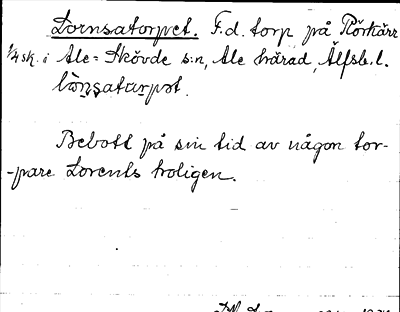 Lornsatorpet. F.d. torp på Rörkärr
1/4 sk. i Ale-Skövde s:n, Ale härad, Älfsb. l.
Bebott på sin tid av någon tor-
-pare Lorents troligen.